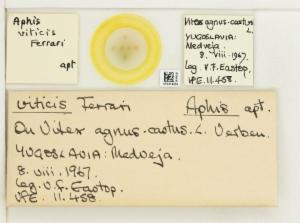 Aphis
viticis
Ferrari
apt
Vitex agnus-castus
L.
YUGOSLAVIA:
Medveja.
8. viii. 1967.
Leg. V.F. Eastop.
VFE. 11.458.
viticis Ferrari Aphis apt.
On Vitex agnus-castus. L. Verben.
YUGOSLAVIA: Medveja.
8. viii. 1967.
Leg. V.F. Eastop.
VFE 11.458.